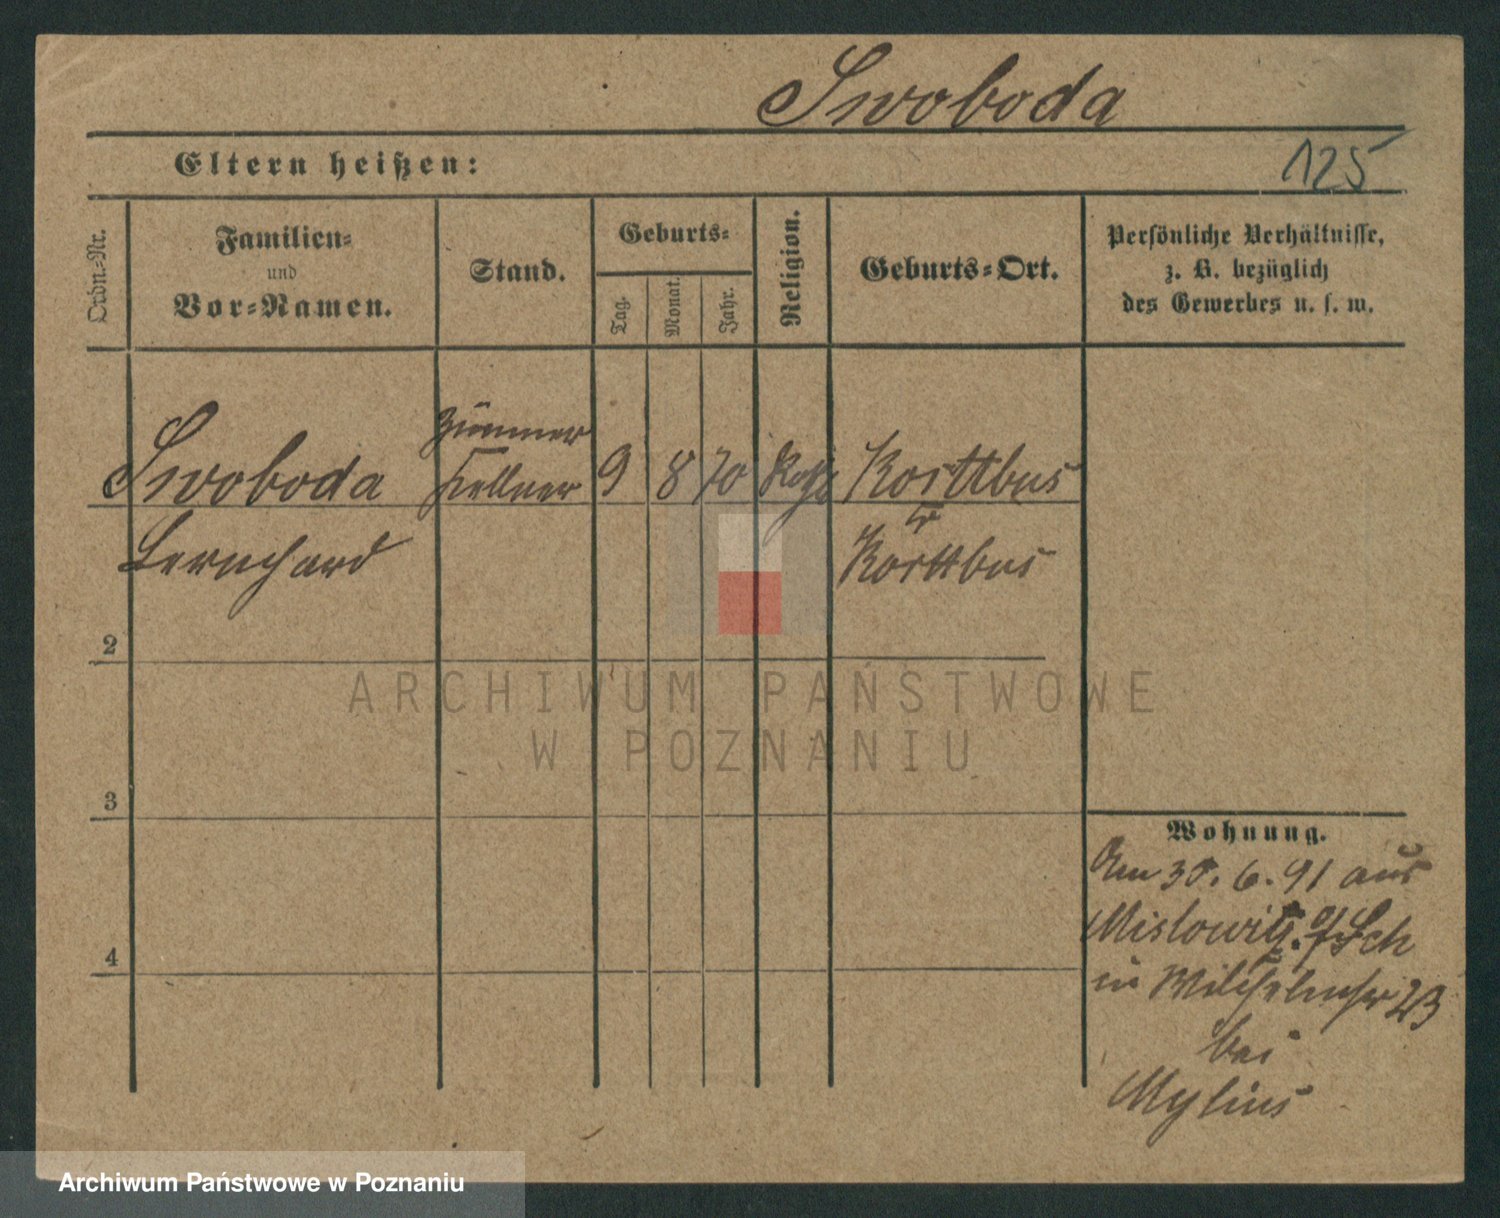 Swoboda
Eltern heißen:
125
Ordn.-Nr.
Familien-
und
Vor-Namen.
Stand.
Geburts-
Tag.
Monat.
Jahr.
Religion.
Geburts-Ort.
Persönliche Verhältnisse,
z. B. bezüglich
des Gewerbes u. s. w.
Swoboda
Zimmer
Kellner
9
8
70
Kath
Kottbus
Bernhard
Kr
Kottbus
2
3
4
Wohnung.
Am 30. 6. 91 aus
Mislowitz O/Sch
in Wilhelmstr 23
bei
Mylius
ARCHIWUM PAŃSTWOWE
W POZNANIU
Archiwum Państwowe w Poznaniu